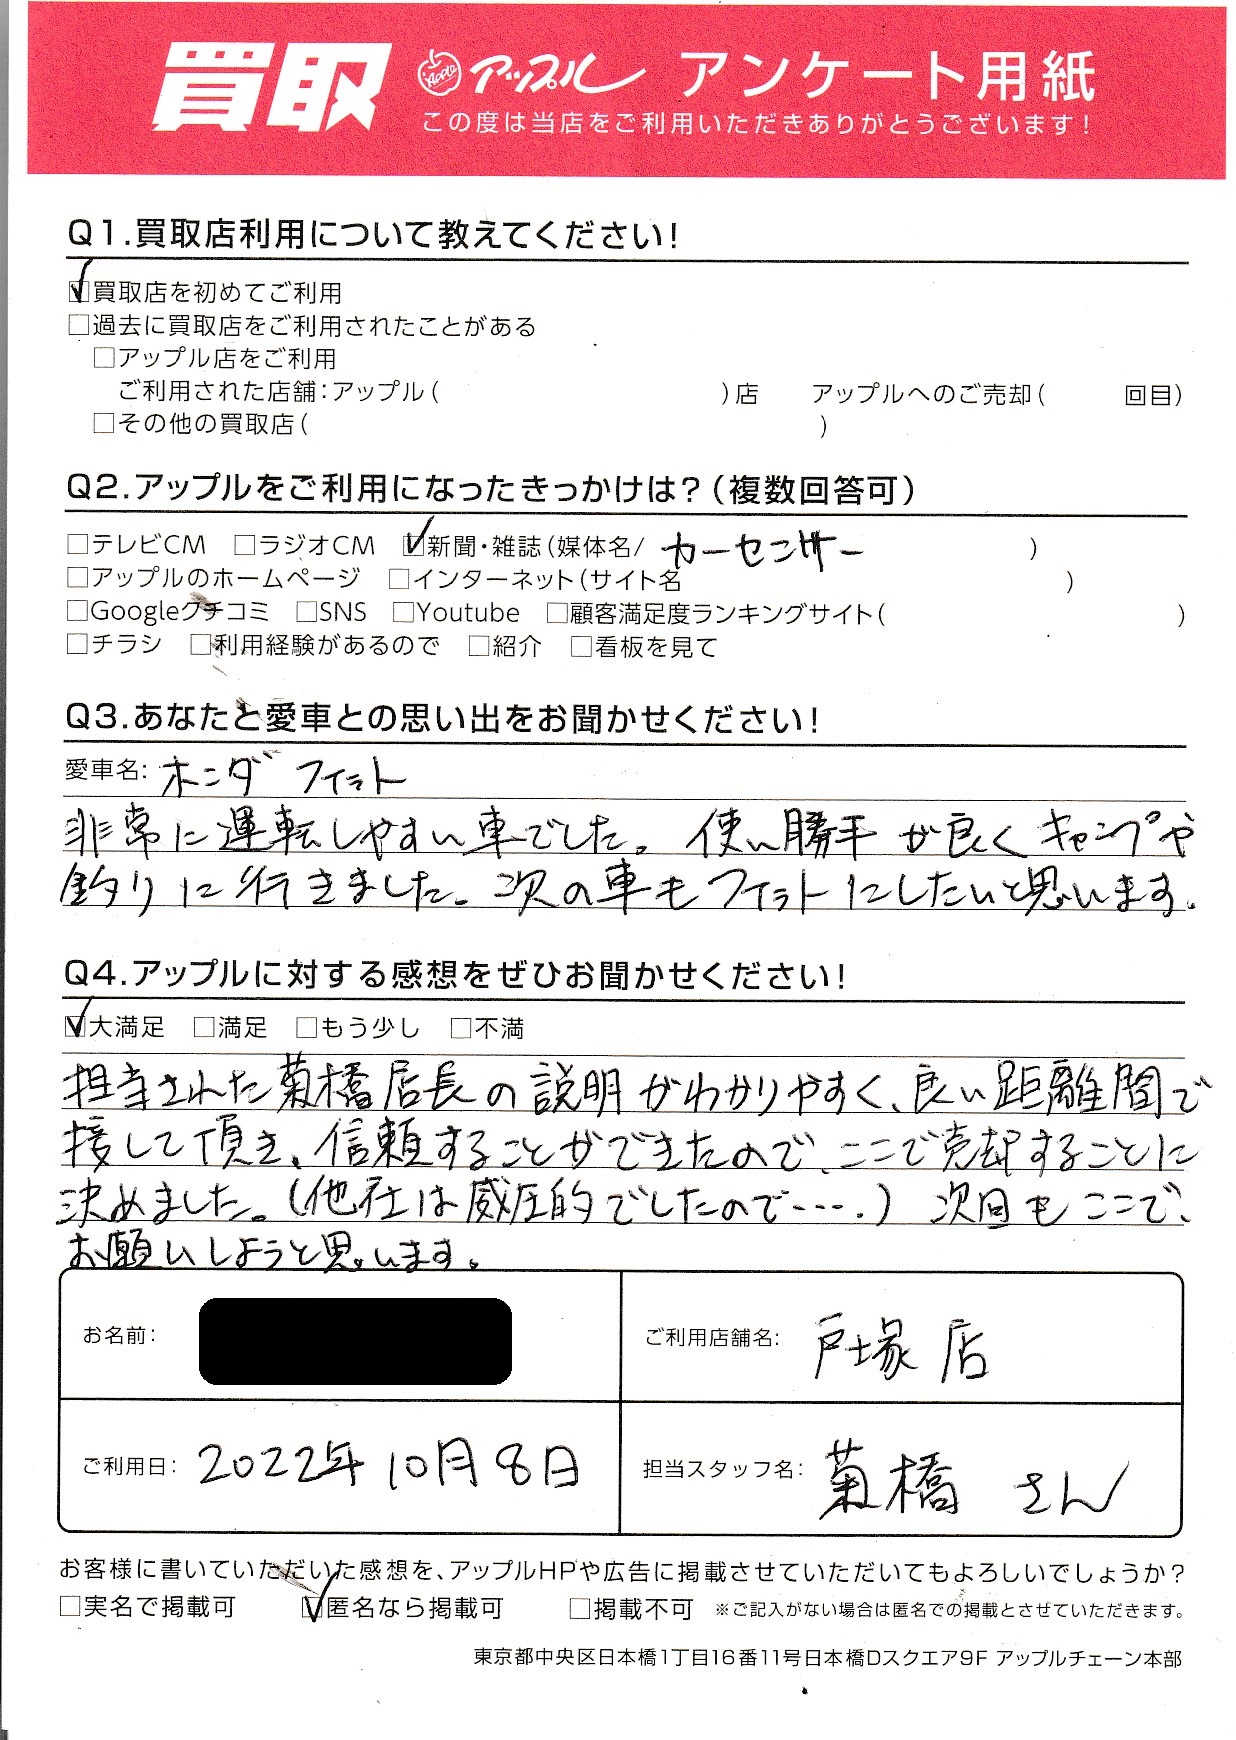 買取 Apple アップル アンケート用紙
この度は当店をご利用いただきありがとうございます！
Q1.買取店利用について教えてください！
☑買取店を初めてご利用
□過去に買取店をご利用されたことがある
□アップル店をご利用
ご利用された店舗：アップル（ ）店 アップルへのご売却（ 回目）
□その他の買取店（ ）
Q2.アップルをご利用になったきっかけは？（複数回答可）
□テレビCM □ラジオCM ☑新聞・雑誌（媒体名/ カーセンサー ）
□アップルのホームページ □インターネット（サイト名 ）
□Googleクチコミ □SNS □Youtube □顧客満足度ランキングサイト（ ）
□チラシ □利用経験があるので □紹介 □看板を見て
Q3.あなたと愛車との思い出をお聞かせください！
愛車名：ホンダ フィット
非常に運転しやすい車でした。使い勝手が良くキャンプや
釣りに行きました。次の車もフィットにしたいと思います。
Q4.アップルに対する感想をぜひお聞かせください！
☑大満足 □満足 □もう少し □不満
担当された菊橋店長の説明がわかりやすく、良い距離間で
接して頂き、信頼することができたので、ここで売却することに
決めました。（他社は威圧的でしたので‥‥.）次回もここで、
お願いしようと思います。
お名前： ご利用店舗名： 戸塚店
ご利用日： 2022年10月8日 担当スタッフ名： 菊橋 さん
お客様に書いていただいた感想を、アップルHPや広告に掲載させていただいてもよろしいでしょうか？
□実名で掲載可 ☑匿名なら掲載可 □掲載不可 ※ご記入がない場合は匿名での掲載とさせていただきます。
東京都中央区日本橋1丁目16番11号日本橋Dスクエア9F アップルチェーン本部